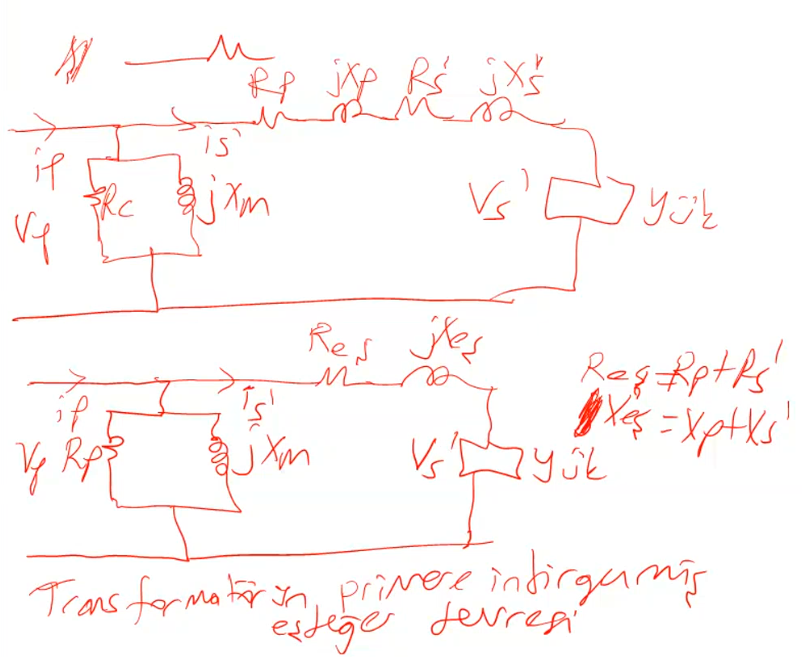 Rp jXp Rs' jXs'
ip is'
Rc jXm Vs' yük
Vp
Reş jXeş
ip is' Reş=Rp+Rs'
Vp Rp jXm Vs' yük Xeş=Xp+Xs'
Transformatörün primere indirgenmiş
eşdeğer devresi